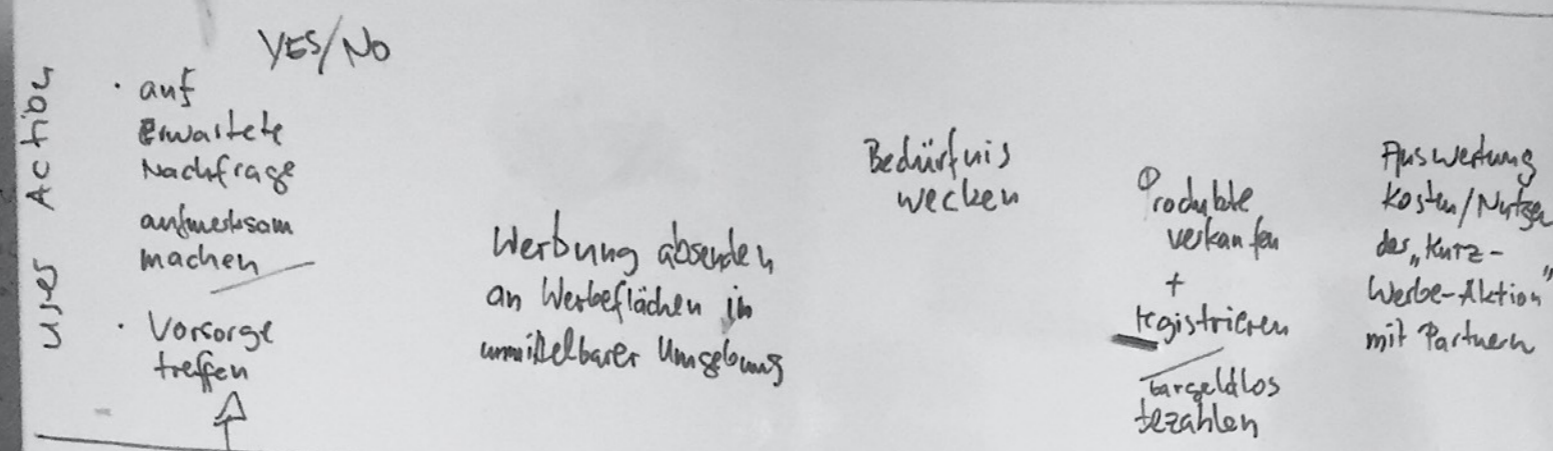 User Action
YES/NO
· auf
Erwartete
Nachfrage
aufmerksam
machen
· Vorsorge
treffen
Werbung absenden
an Werbeflächen in
unmittelbarer Umgebung
Bedürfnis
wecken
Produkte
verkaufen
+
registrieren
bargeldlos
bezahlen
Auswertung
Kosten/Nutzen
der „Kurz-
Werbe-Aktion"
mit Partnern